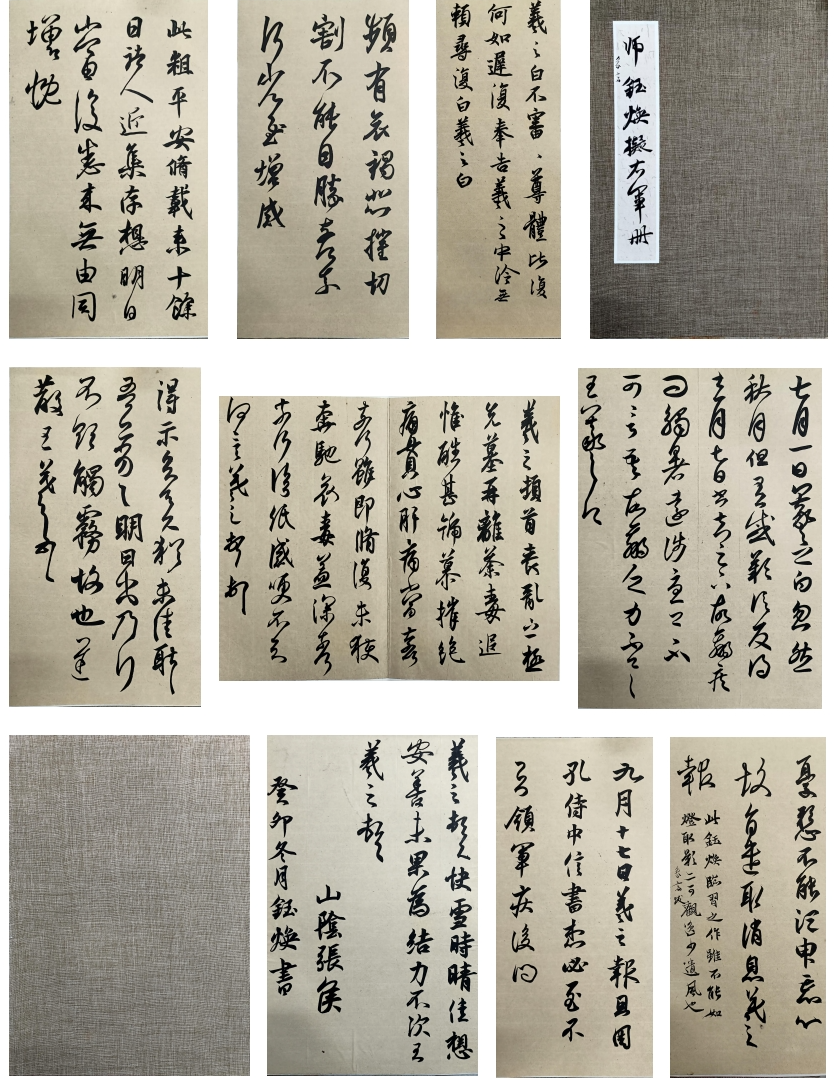 师钰焕擬右軍册
羲之白不審、尊體比復
何如遲復奉告羲之中冷無
賴尋復白羲之白
頻有哀禍悲摧切
割不能自勝奈何奈
何省慰增感
此粗平安脩載來十餘
日諸人近集存想明日
當復悉來無由同
增慨
七月一日羲之白忽然
秋月但有感歎信反得
去月七日書知足下故羸疾
問觸暑遠涉憂卿不
可言吾故羸乏力不具
王羲之白
羲之頓首喪亂之極
先墓再離荼毒追
惟酷甚號慕摧絶
痛貫心肝痛當奈
奈何雖即脩復未獲
奔馳哀毒益深奈
奈何臨紙感哽不知
何言羲之頓首頓首
得示知足下猶未佳耿耿
吾亦劣劣明日出乃行
不欲觸霧故也遲
散王羲之頓首
憂懸不能須臾忘心
故旨遣取消息羲之
報
此鈺焕臨習之作雖不能如
燈取影二可觀
少道風也
九月十七日羲之報且因
孔侍中信書想必至不
知領軍疾後問
羲之頓首快雪時晴佳想
安善未果為結力不次王
羲之頓首
山陰張侯
癸卯冬月鈺焕書